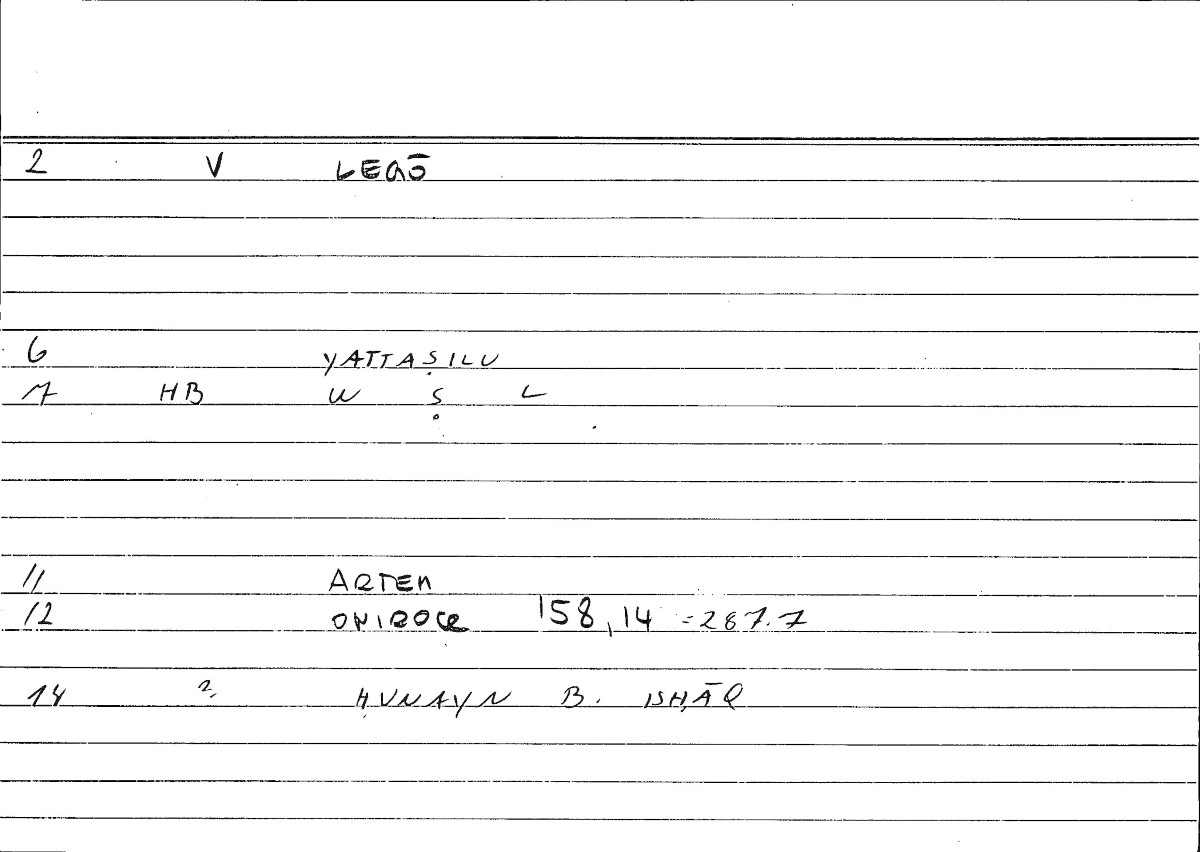 2 V LEGŌ
6 YATTAṢILU
7 HB W Ṣ L
11 ARTEM
12 ONIROCR 158,14 = 287.7
14 2. ḤUNAYN B. ISḤĀQ